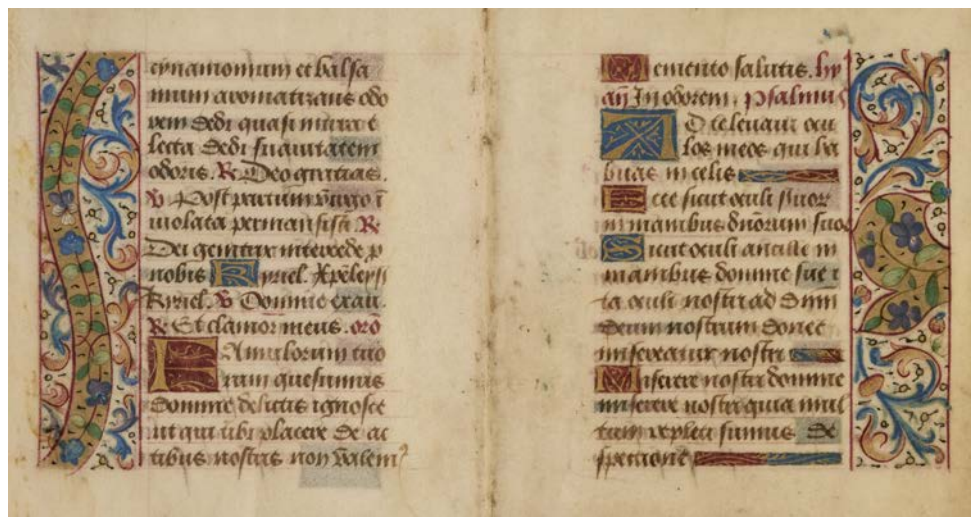 cynamomum et balsa
mum aromatizans odo
rem dedi quasi mirra e
lecta dedi suauitatem
odoris. R Deo gratias.
V Post partum virgo i
uiolata permansisti R
Dei genitrix intercede p
nobis Kyriel. Xpeleys
Kyriel. V Domine exau.
R Et clamor meus. oro
Famulorum tuo
rum quesumus
Domine delictis ignosce
ut qui tibi placere de ac
tibus nostris non valem9
Memento salutis. hy
an In odorem. psalmus
AD te leuaui ocu
los meos qui ha
bitas in celis
Ecce sicut oculi seruor
in manibus dnorum suor
Sicut oculi ancille in
manibus domine sue i
ta oculi nostri ad dnm
deum nostrum donec
misereatur nostri
Miserere nostri domine
miserere nostri quia mul
tum repleti sumus de
spectione